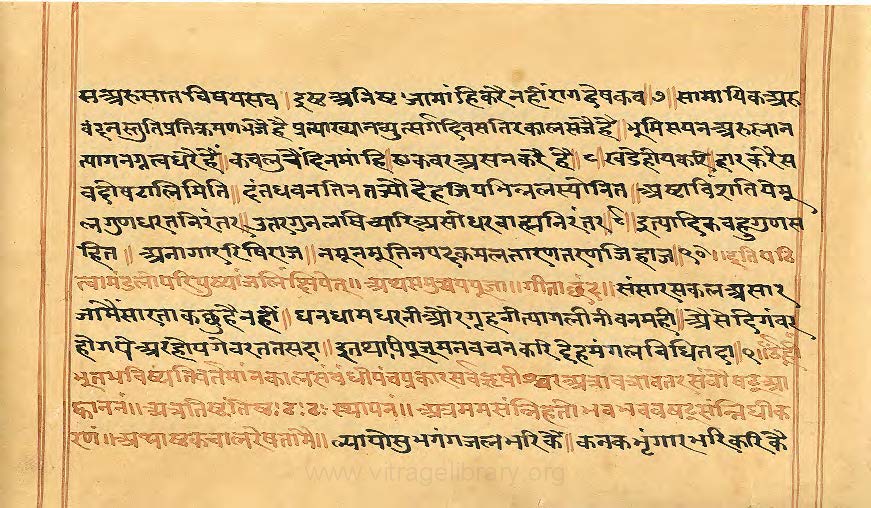 स अरु सात विषय सब॥ इष्ट अनिष्ट जामांहि करै नहीं राग द्वेष कब॥७॥ सामायिक अरु
वंदन स्तुति प्रतिक्रमण भजै है प्रत्याख्यान व्युत्सर्ग दिवस तिरकाल सजै है॥ भूमि सयन अरु स्नान
त्याग नग्नत्व धरै हैं॥ कचलुचै दिन मांहि एकवर असन करै है॥८॥ खडे होय करि हार करै स
ब दोष टालि मिति॥ दंतधवन तिन तज्यौ देह जिय भिन्न लख्यो नित॥ अष्टाविंशति ये मू
लगुण धरत निरंतर॥ उतर गुन लषि च्यारि असी धर बाह्य निरंतर॥९॥ इत्यादिक बहु गुण स
हित॥ अनागार रिषिराज॥ नमूं नमूं तिन पद कमल तारण तरण जिहाज॥१०॥ इति पठि
त्वा मंडलोपरि पुष्पांजलिं क्षिपेत्॥ अथ समुच्चय पूजा॥ गीता छंद॥ संसार सकल असार
जामैं सारता कछु है नहीं॥ धन धाम धरनी और गृहनी त्याग लीनी वन मही॥ अैसे दिगंबर
हो गये अरु होयगे वरतत सदा॥ इतथापि पूजूं मन वचन करि देह मंगल विधि तदा॥१॥ उँ ह्रीं
भूत भविष्यति वर्तमान काल संबंधी पंच प्रकार सर्व ऋषीश्वर अत्रावत्रावतर संवौषट् आ
ह्वाननं॥ अत्र तिष्ठ तिष्ठ ठः ठः स्थापनं॥ अत्र मम सन्निहतो भव भव वषट् सन्निधीक
रणं॥ अथाष्टक चाल रेषता मै॥ ल्यायो सुभ गंगजल भरिकैं॥ कनक भृंगार भरि करिकै
www.vitragelibrary.org